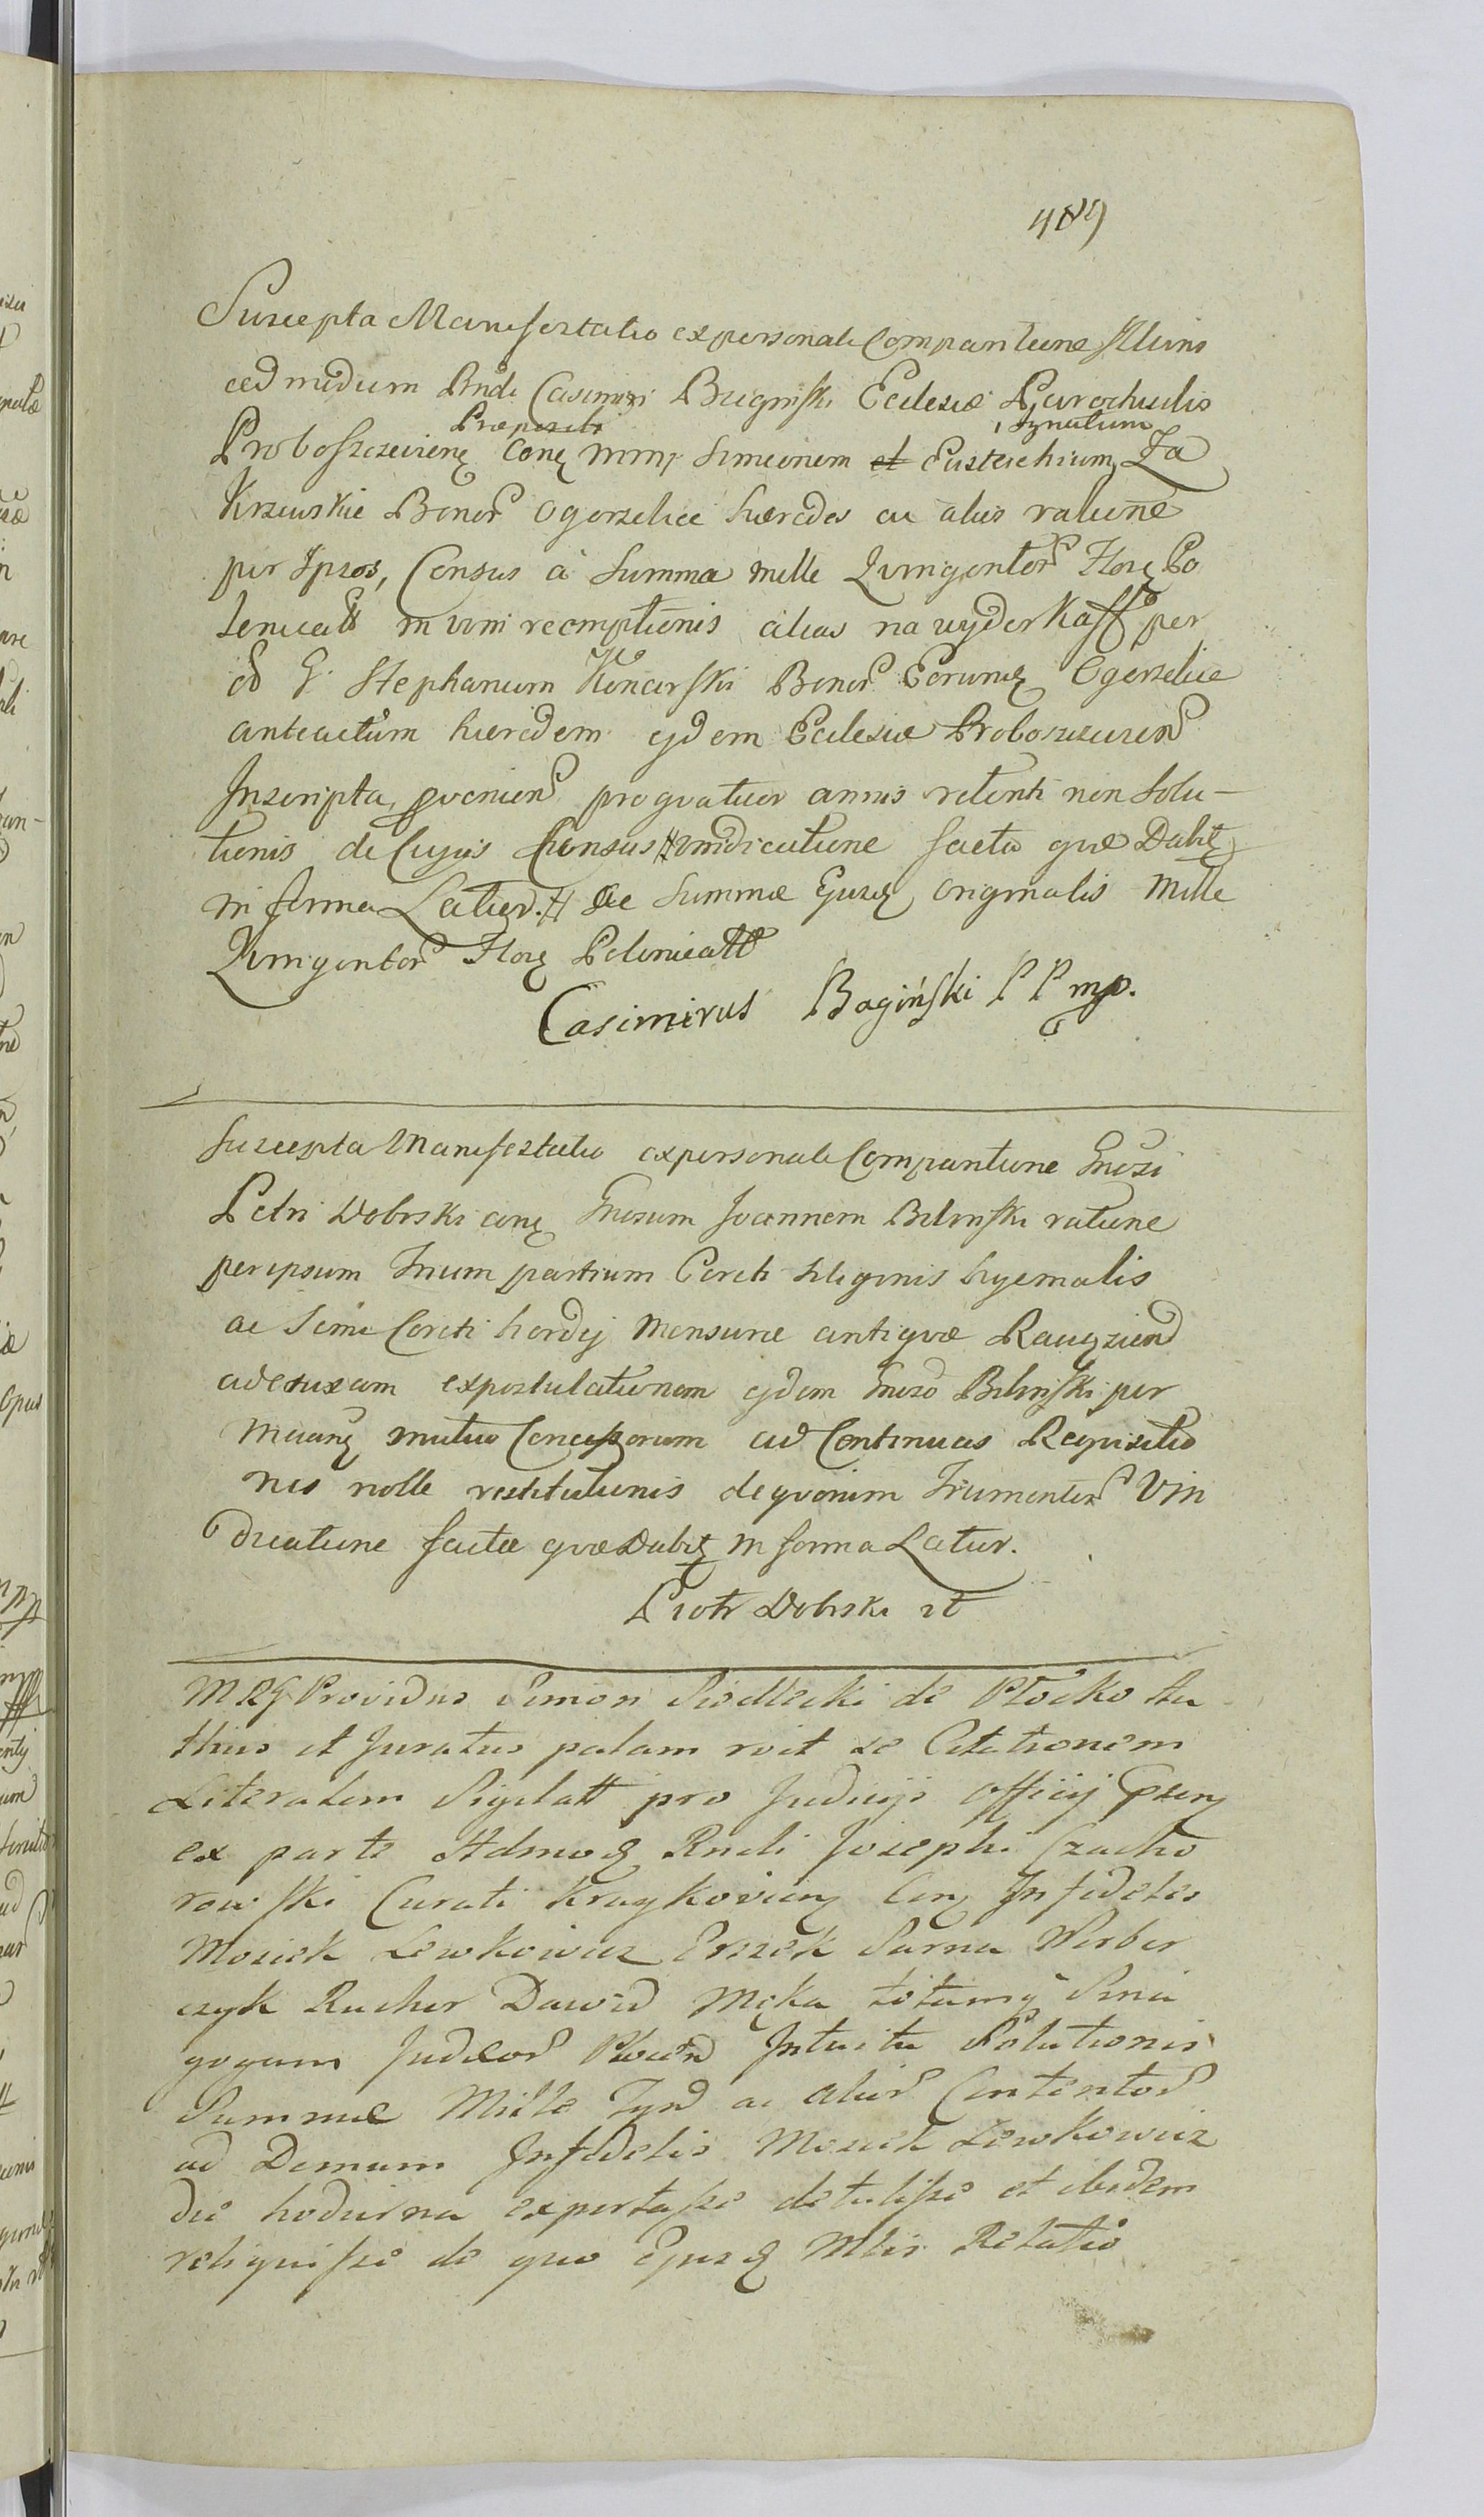 489
Suscepta Manifestatio ex personali Comparitione Illtris
ad modum Rndi Casimiri Baginski Eclesiæ Parochialis
Præpositi , Ignatium
Proboszczewienę conę mmi Simeonem et Eustachium Za
Krzewskie Bonor Ogorzelice hæredes ac alios ratione
per Ipsos, Census à Summa mille Quingentor Florę Po
lonicatt in vim reemptionis alias na wyderkaff per
od G. Stephanum Konarski Bonor Eorumę Ogorzelice
anteactum hæredem ejdem Eclesiæ Proboszczewien
Inscripta, provenien pro quatuor annis retenti non Solu-
tionis de Cujus Census # vindicatione facta quæ Dabit
in forma Latior. # ac Summæ Ejusq originalis Mille
Quingentor Florę Polonicatt
Casimirus Bagiński P P mp.
Suscepta Manifestatio ex personali Comparitione Gnosi
Petri Dobrski conę Gnosum Joannem Bilinski ratione
per ipsum Trium partium Coreti siliginis hyemalis
ac Semi Coreti hordej Mensuræ antiquæ Raciązien
ad ejusdem expostulationem ejdem Gnoso Bilinski per
Meanę mutuo Concessorum ad Continuas Requisitio
nes nolle restitutionis de quorum Frumentor Vin
dicatione facta quæ Dabit in forma Latior.
Piotr Dobrski
MRG Providus Simon Siodlecki de Płocko Au
thus et Juratus palam roit se Citationem
Literalem Sigilatt pro Judicijs Officij
ex parte Admoq Rndi Josephi Czacho
rowski Curati Kraykovien Con Infideles
Mosiek Lewkowicz Erszek Sarna Werber
czyk Rucher Dawid Męka totamq Sina
gogam Judæor Plocen Intuitu Solutionis
Summæ Mille Tynf ac alior Contentor
ad Domum Infidelis Mosiek Lewkowicz
die hodierna exportasse detulisse et ibidem
reliquisse de quo Ejusq Mlis Relatio